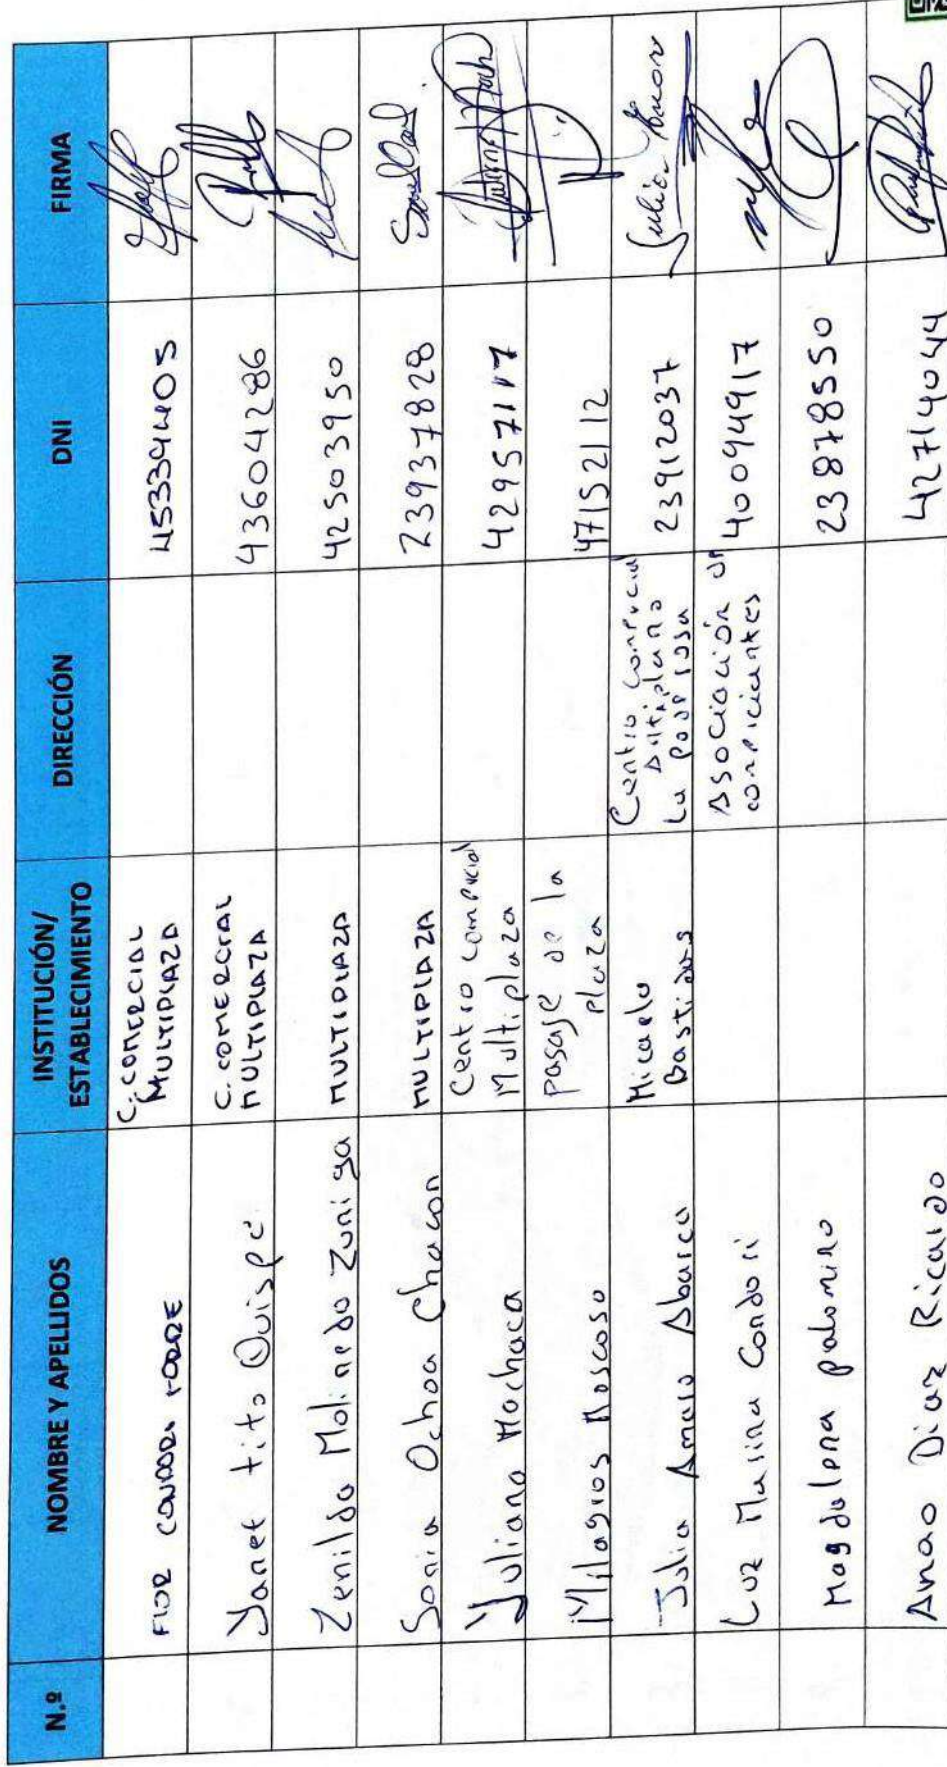 N.º NOMBRE Y APELLIDOS INSTITUCIÓN/ ESTABLECIMIENTO DIRECCIÓN DNI FIRMA
FLOR CONDORI C. COMERCIAL MULTIPLAZA 45334405
Yanet tito Quispe C. COMERCIAL MULTIPLAZA 43604286
Zenilda Molinedo Zuniga MULTIPLAZA 42503950
Sonia Ochoa Chacon MULTIPLAZA 23937828
Yuliana Machaca Centro comercial Multiplaza 42957117
Milagros Moscoso pasaje de la plaza 47152112
Julia Amaro Abarca Micaela Bastidas Centro comercial Altiplano La 23912037
Luz Marina Condori Asociación de comerciantes 40094917
Magdalena palomino 23878550
Anao Diaz Ricardo 42714044